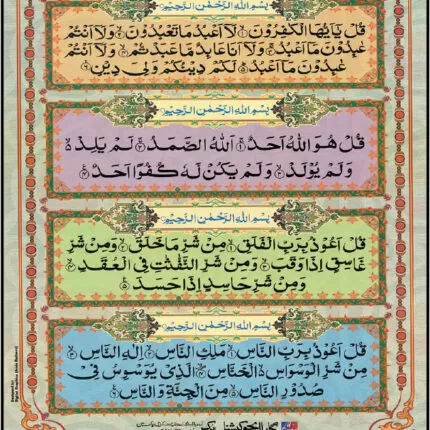 بِسْمِ اللهِ الرَّحْمٰنِ الرَّحِيْمِ
قُلْ يٰۤاَيُّهَا الْكٰفِرُوْنَ ۙ لَاۤ اَعْبُدُ مَا تَعْبُدُوْنَ ۙ وَلَاۤ اَنْتُمْ
عٰبِدُوْنَ مَاۤ اَعْبُدُ ۚ وَلَاۤ اَنَا عَابِدٌ مَّا عَبَدْتُّمْ ۙ وَلَاۤ اَنْتُمْ
عٰبِدُوْنَ مَاۤ اَعْبُدُ ؕ لَكُمْ دِيْنُكُمْ وَلِيَ دِيْنِ
بِسْمِ اللهِ الرَّحْمٰنِ الرَّحِيْمِ
قُلْ هُوَ اللهُ اَحَدٌ ۚ اَللهُ الصَّمَدُ ۚ لَمْ يَلِدْ ۙ
وَلَمْ يُوْلَدْ ۙ وَلَمْ يَكُنْ لَّهٗ كُفُوًا اَحَدٌ
بِسْمِ اللهِ الرَّحْمٰنِ الرَّحِيْمِ
قُلْ اَعُوْذُ بِرَبِّ الْفَلَقِ ۙ مِنْ شَرِّ مَا خَلَقَ ۙ وَمِنْ شَرِّ
غَاسِقٍ اِذَا وَقَبَ ۙ وَمِنْ شَرِّ النَّفّٰثٰتِ فِي الْعُقَدِ ۙ
وَمِنْ شَرِّ حَاسِدٍ اِذَا حَسَدَ
بِسْمِ اللهِ الرَّحْمٰنِ الرَّحِيْمِ
قُلْ اَعُوْذُ بِرَبِّ النَّاسِ ۙ مَلِكِ النَّاسِ ۙ اِلٰهِ النَّاسِ ۙ
مِنْ شَرِّ الْوَسْوَاسِ ۙ الْخَنَّاسِ ۙ الَّذِيْ يُوَسْوِسُ فِيْ
صُدُوْرِ النَّاسِ ۙ مِنَ الْجِنَّةِ وَالنَّاسِ